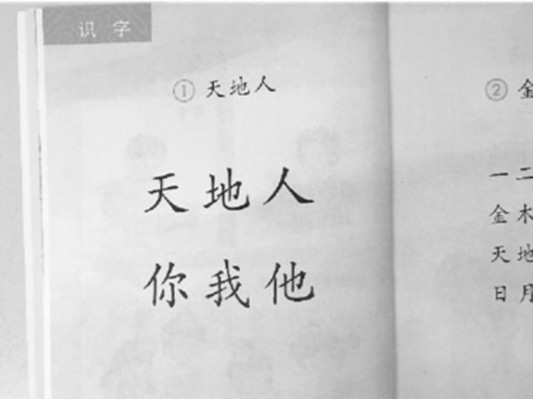 识字
① 天地人
天地人
你我他
② 金
一二
金木
天地
日月